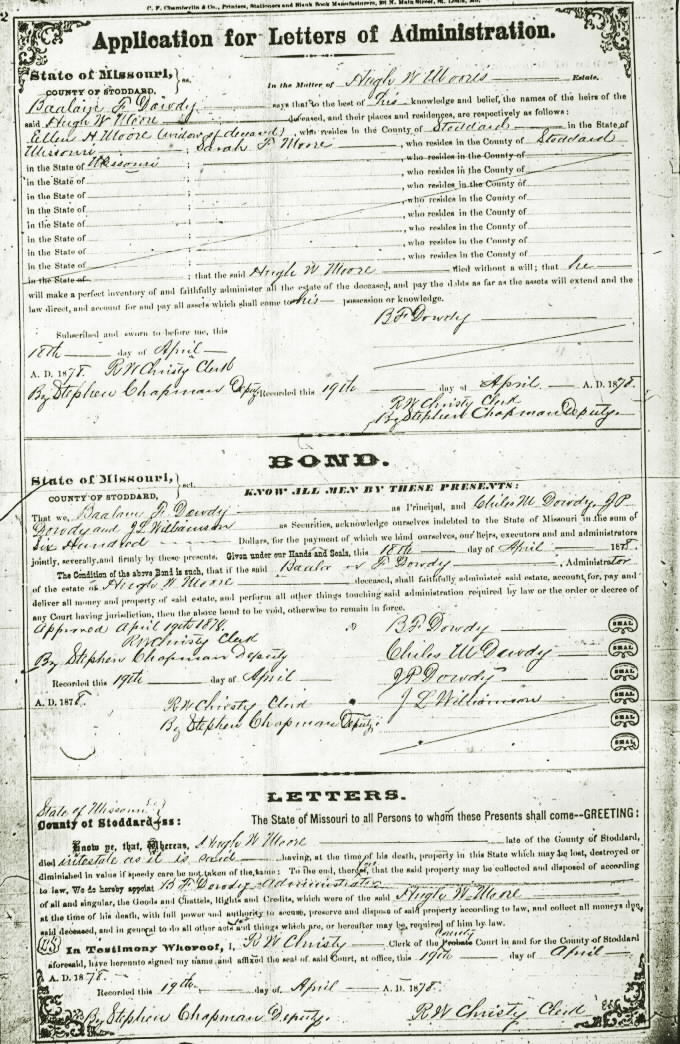 2
C. F. Chamberlin & Co., Printers, Stationers and Blank Book Manufacturers, N. Main Street, St. Louis, Mo.
Application for Letters of Administration.
State of Missouri, } ss.
COUNTY OF STODDARD,
In the Matter of Hugh W Moores Estate.
Baalam F. Dowdy says that to the best of his knowledge and belief, the names of the heirs of the
said Hugh W Moore deceased, and their places and residences, are respectively as follows:
Ellen H Moore (widow of deceased), who resides in the County of Stoddard in the State of
Missouri ; Sarah F Moore, who resides in the County of Stoddard
in the State of Missouri ; , who resides in the County of
in the State of ; , who resides in the County of
in the State of ; , who resides in the County of
in the State of , who resides in the County of
in the State of , who resides in the County of
in the State of , who resides in the County of
in the State of , who resides in the County of
in the State of , who resides in the County of
in the State of ; that the said Hugh W Moore died without a will; that he
will make a perfect inventory of and faithfully administer all the estate of the deceased, and pay the debts as far as the assets will extend and the
law direct, and account for and pay all assets which shall come to his possession or knowledge.
B F Dowdy
Subscribed and sworn to before me, this
18th day of April
A. D. 1878. R W Christy Clerk
By Stephen Chapman Deputy Recorded this 19th day of April A. D. 1878.
R W Christy Clerk
By Stephen Chapman Deputy.
BOND.
State of Missouri, } sct.
COUNTY OF STODDARD,
KNOW ALL MEN BY THESE PRESENTS:
That we, Baalam F. Dowdy as Principal, and Chiles M Dowdy, J P
Dowdy and J L Williamson as Securities, acknowledge ourselves indebted to the State of Missouri in the sum of
Six Hundred Dollars, for the payment of which we bind ourselves, our heirs, executors and and administrators
jointly, severally, and firmly by these presents. Given under our Hands and Seals, this 18th day of April 1878.
The Condition of the above Bond is such, that if the said Baalam F. Dowdy, Administrator
of the estate of Hugh W. Moore deceased, shall faithfully administer said estate, account for, pay and
deliver all money and property of said estate, and perform all other things touching said administration required by law or the order or decree of
any Court having jurisdiction, then the above bond to be void, otherwise to remain in force.
Approved April 19th 1878. B. F. Dowdy SEAL
R W Christy Clerk
By Stephen Chapman Deputy Chiles M Dowdy SEAL
Recorded this 19th day of April J P Dowdy SEAL
A. D. 1878. R W Christy Clerk J L Williamson SEAL
By Stephen Chapman Deputy. SEAL
SEAL
LETTERS.
State of Missouri
County of Stoddard ss: The State of Missouri to all Persons to whom these Presents shall come--GREETING:
Know ye, that, Whereas, Hugh W Moore late of the County of Stoddard,
died intestate as it is said having, at the time of his death, property in this State which may be lost, destroyed or
diminished in value if speedy care be not taken of the same: To the end, therefore, that the said property may be collected and disposed of according
to law, We do hereby appoint B F Dowdy Administrator
of all and singular, the Goods and Chattels, Rights and Credits, which were of the said Hugh W. Moore
at the time of his death, with full power and authority to secure, preserve and dispose of said property according to law, and collect all moneys due
said deceased, and in general to do all other acts and things which are, or hereafter may be, required of him by law.
In Testimony Whereof, I, R W Christy Clerk of the Probate County Court in and for the County of Stoddard
aforesaid, have hereunto signed my name and affixed the seal of said Court, at office, this 19th day of April
A. D. 1878.
Recorded this 19th day of April A. D. 1878.
By Stephen Chapman Deputy. R W Christy Clerk